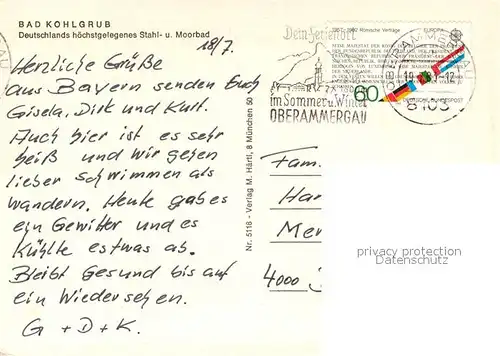 BAD KOHLGRUB
Deutschlands höchstgelegenes Stahl- u. Moorbad
18/7.
Herzliche Grüße
aus Bayern senden Euch
Gisela, Dirk und Kurt.
Auch hier ist es sehr
heiß und wir gehen
lieber schwimmen als
wandern. Heute gab es
ein Gewitter und es
kühlte etwas ab.
Bleibt gesund bis auf
ein Wiedersehen.
G + D + K.
Nr. 5118 - Verlag M. Härtl, 8 München 50
Dein Ferienort
im Sommer u. Winter
OBERAMMERGAU
1957-1982 Römische Verträge EUROPA
60
DEUTSCHE BUNDESPOST
Fam.
Ha
Me
4000
privacy protection
Datenschutz